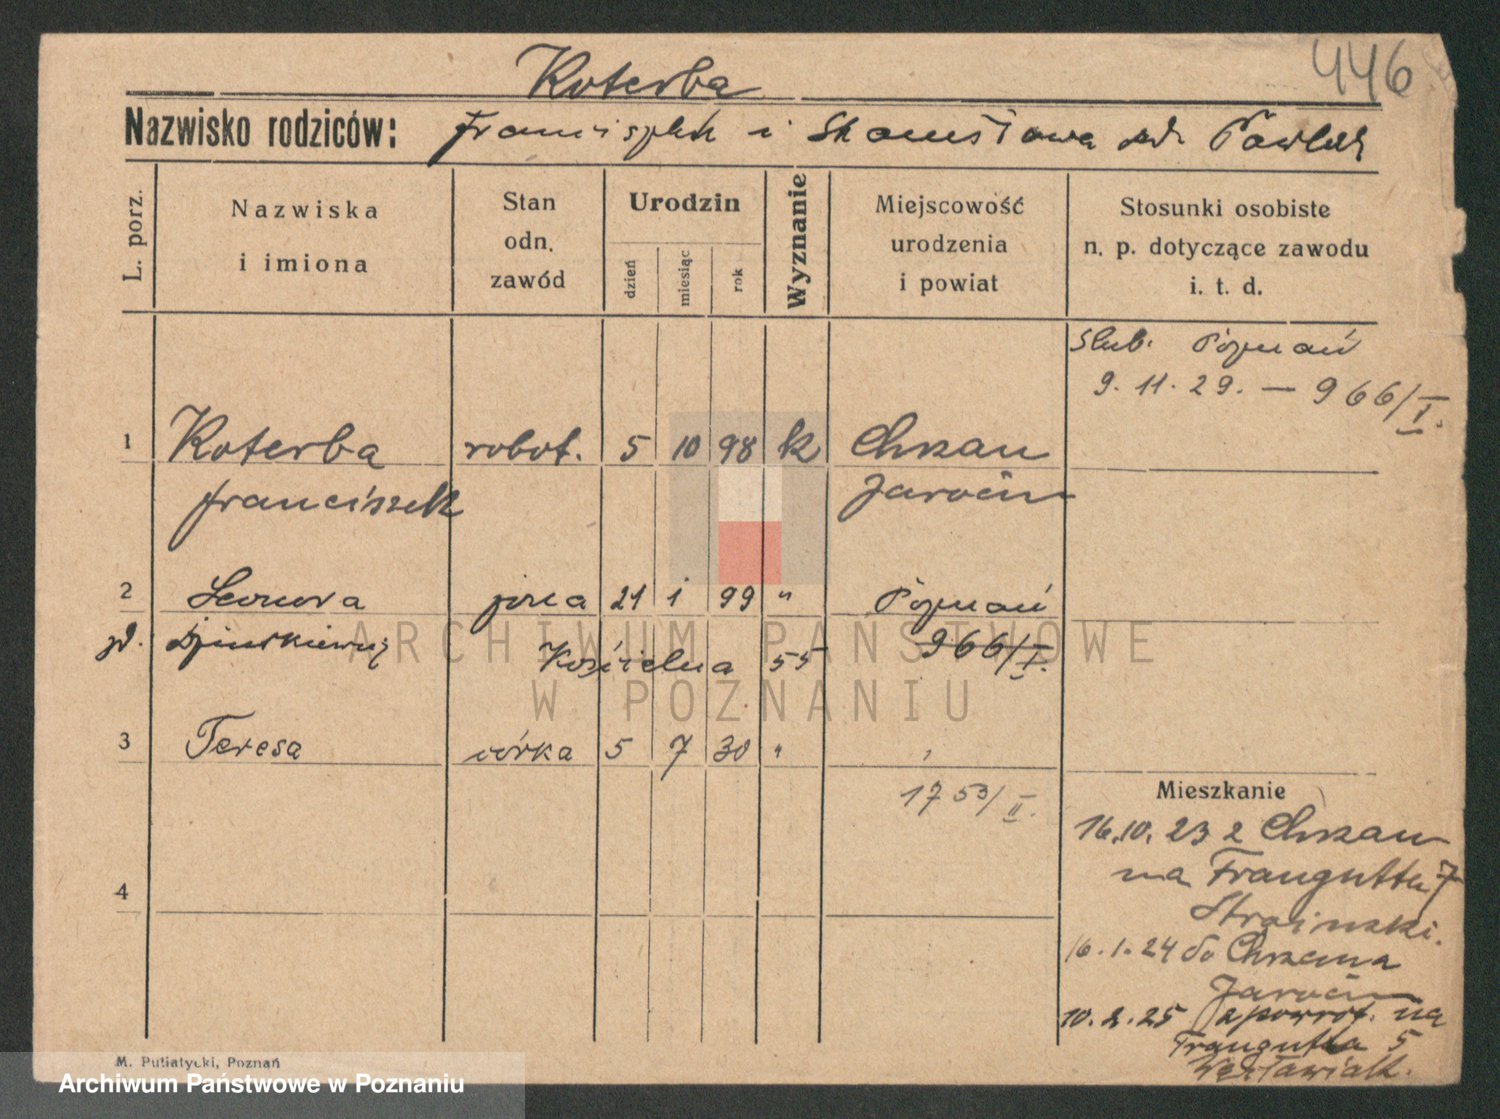 446
Koterba
Nazwisko rodziców: Franciszek i Stanisława zd. Pawlak
L. porz.
Nazwiska
i imiona
Stan
odn.
zawód
Urodzin
dzień
miesiąc
rok
Wyznanie
Miejscowość
urodzenia
i powiat
Stosunki osobiste
n. p. dotyczące zawodu
i. t. d.
Slub. Poznań
9. 11. 29. — 966/I.
1 Koterba robot. 5 10 98 k Chrzan
Franciszek Jarocin
2 Leonora żona 21 1 99 " Poznań
zd. Kościelna 55 966/I.
ARCHIWUM PAŃSTWOWE
W POZNANIU
3 Teresa córka 5 7 30 "
1753/II.
Mieszkanie
16.10.23 z Chrzan
na Traugutta 7
16.1.24 do Chrzana
Jarocin
10.2.25 zpowrot. na
Traugutta 5
4
M. Putiatycki, Poznań
Archiwum Państwowe w Poznaniu